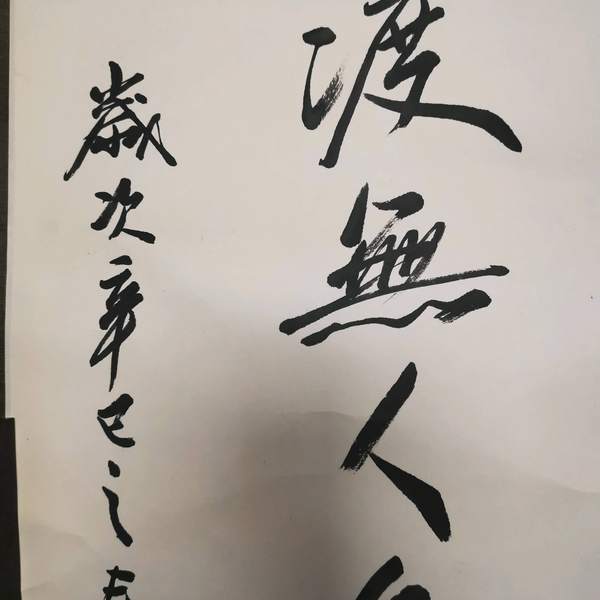 渡無人
歲次辛巳之